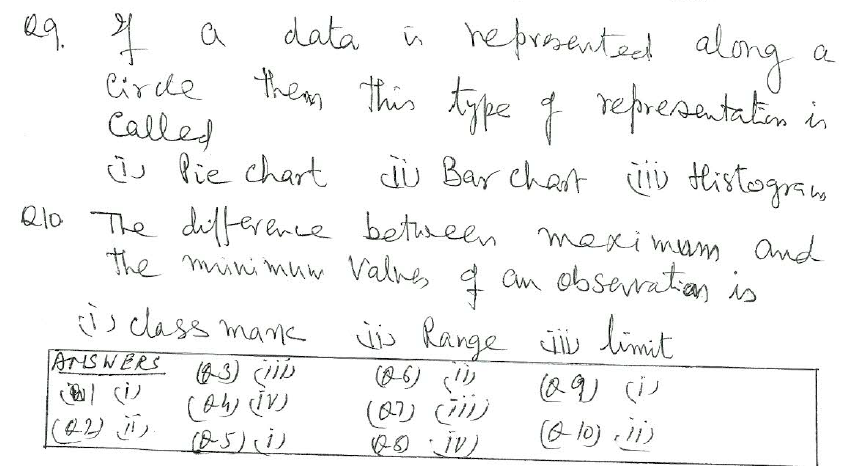 Q9. If a data is represented along a
Circle then this type of representation is
Called
(i) Pie chart (ii) Bar chart (iii) Histogram
Q10 The difference between maximum and
the minimum values of an observation is
(i) class mark (ii) Range (iii) limit
ANSWERS (Q3) (iii) (Q6) (ii) (Q9) (i)
(Q1 (i) (Q4) (iv) (Q7) (iii)
(Q2) ii) (Q5) (i) Q8) iv) (Q10) ii)